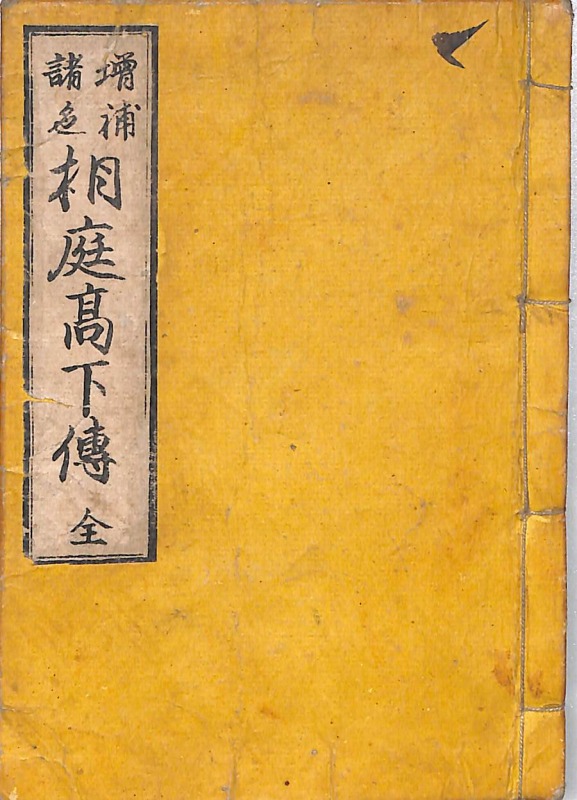 增補
諸色
相庭高下傳
全